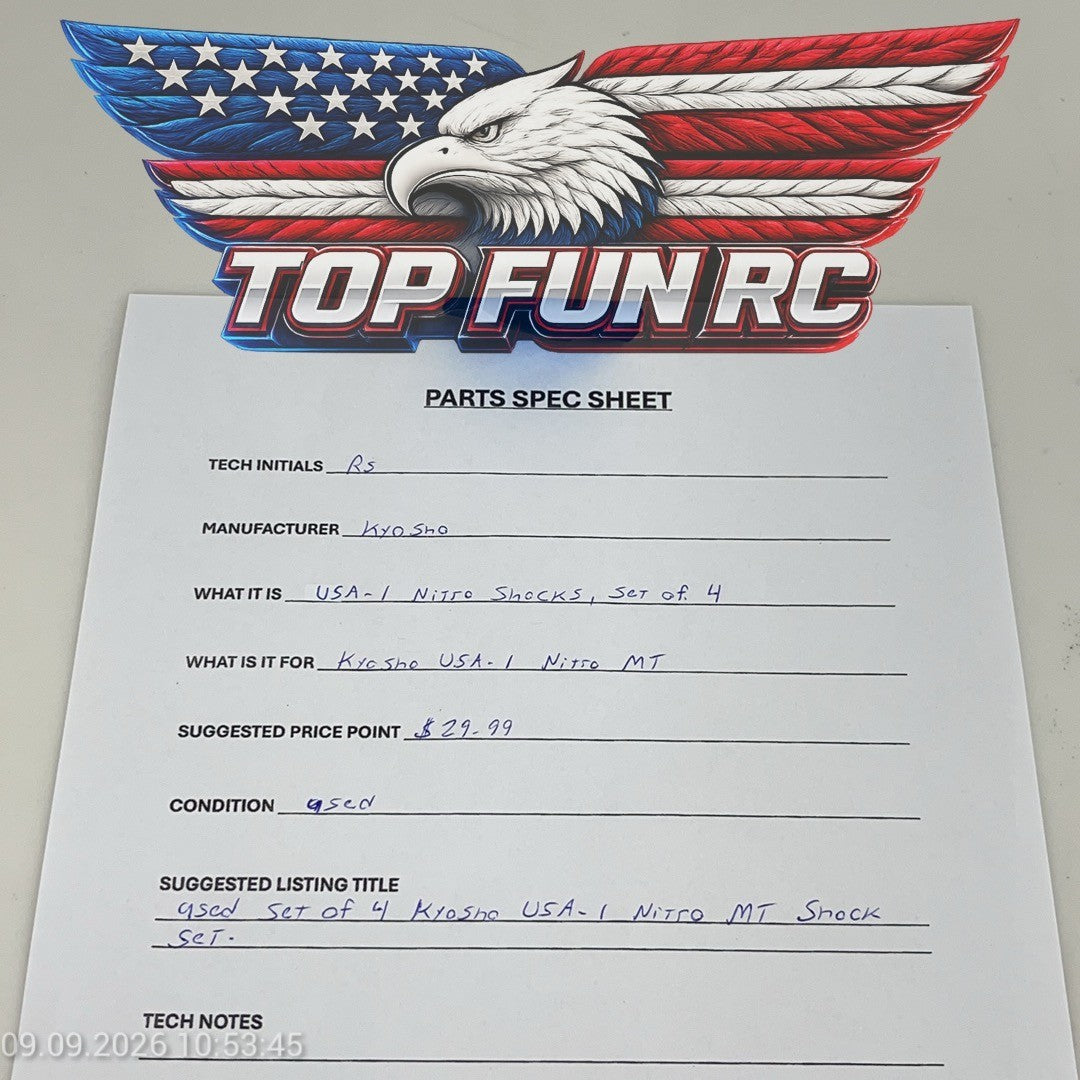 TOP FUN RC
PARTS SPEC SHEET
TECH INITIALS RS
MANUFACTURER Kyosho
WHAT IT IS USA-1 Nitro Shocks, Set of 4
WHAT IS IT FOR Kyosho USA-1 Nitro MT
SUGGESTED PRICE POINT $29.99
CONDITION used
SUGGESTED LISTING TITLE
used Set of 4 Kyosho USA-1 Nitro MT Shock
Set.
TECH NOTES
09.09.2026 10:53:45